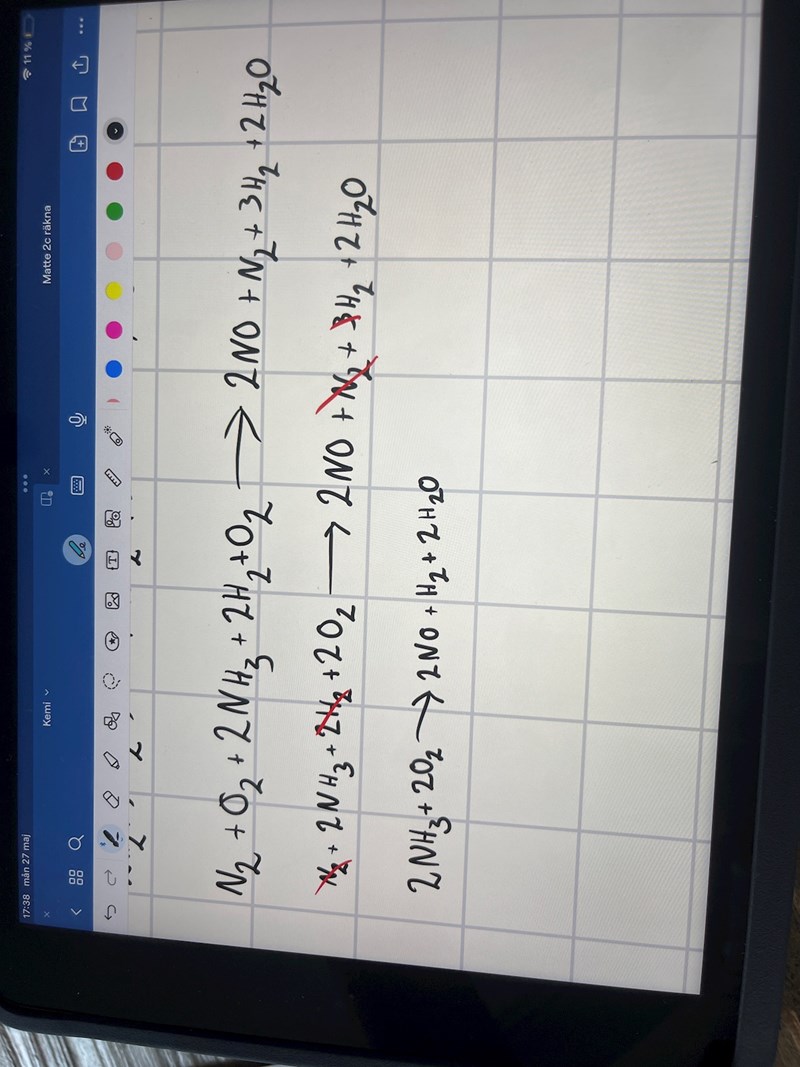 17:38 mån 27 maj
11 %
Kemi
Matte 2c räkna
N₂ + O₂ + 2NH₃ + 2H₂ + O₂ → 2NO + N₂ + 3H₂ + 2H₂O
N₂ + 2NH₃ + 2H₂ + 2O₂ → 2NO + N₂ + 3H₂ + 2H₂O
2NH₃ + 2O₂ → 2NO + H₂ + 2H₂O